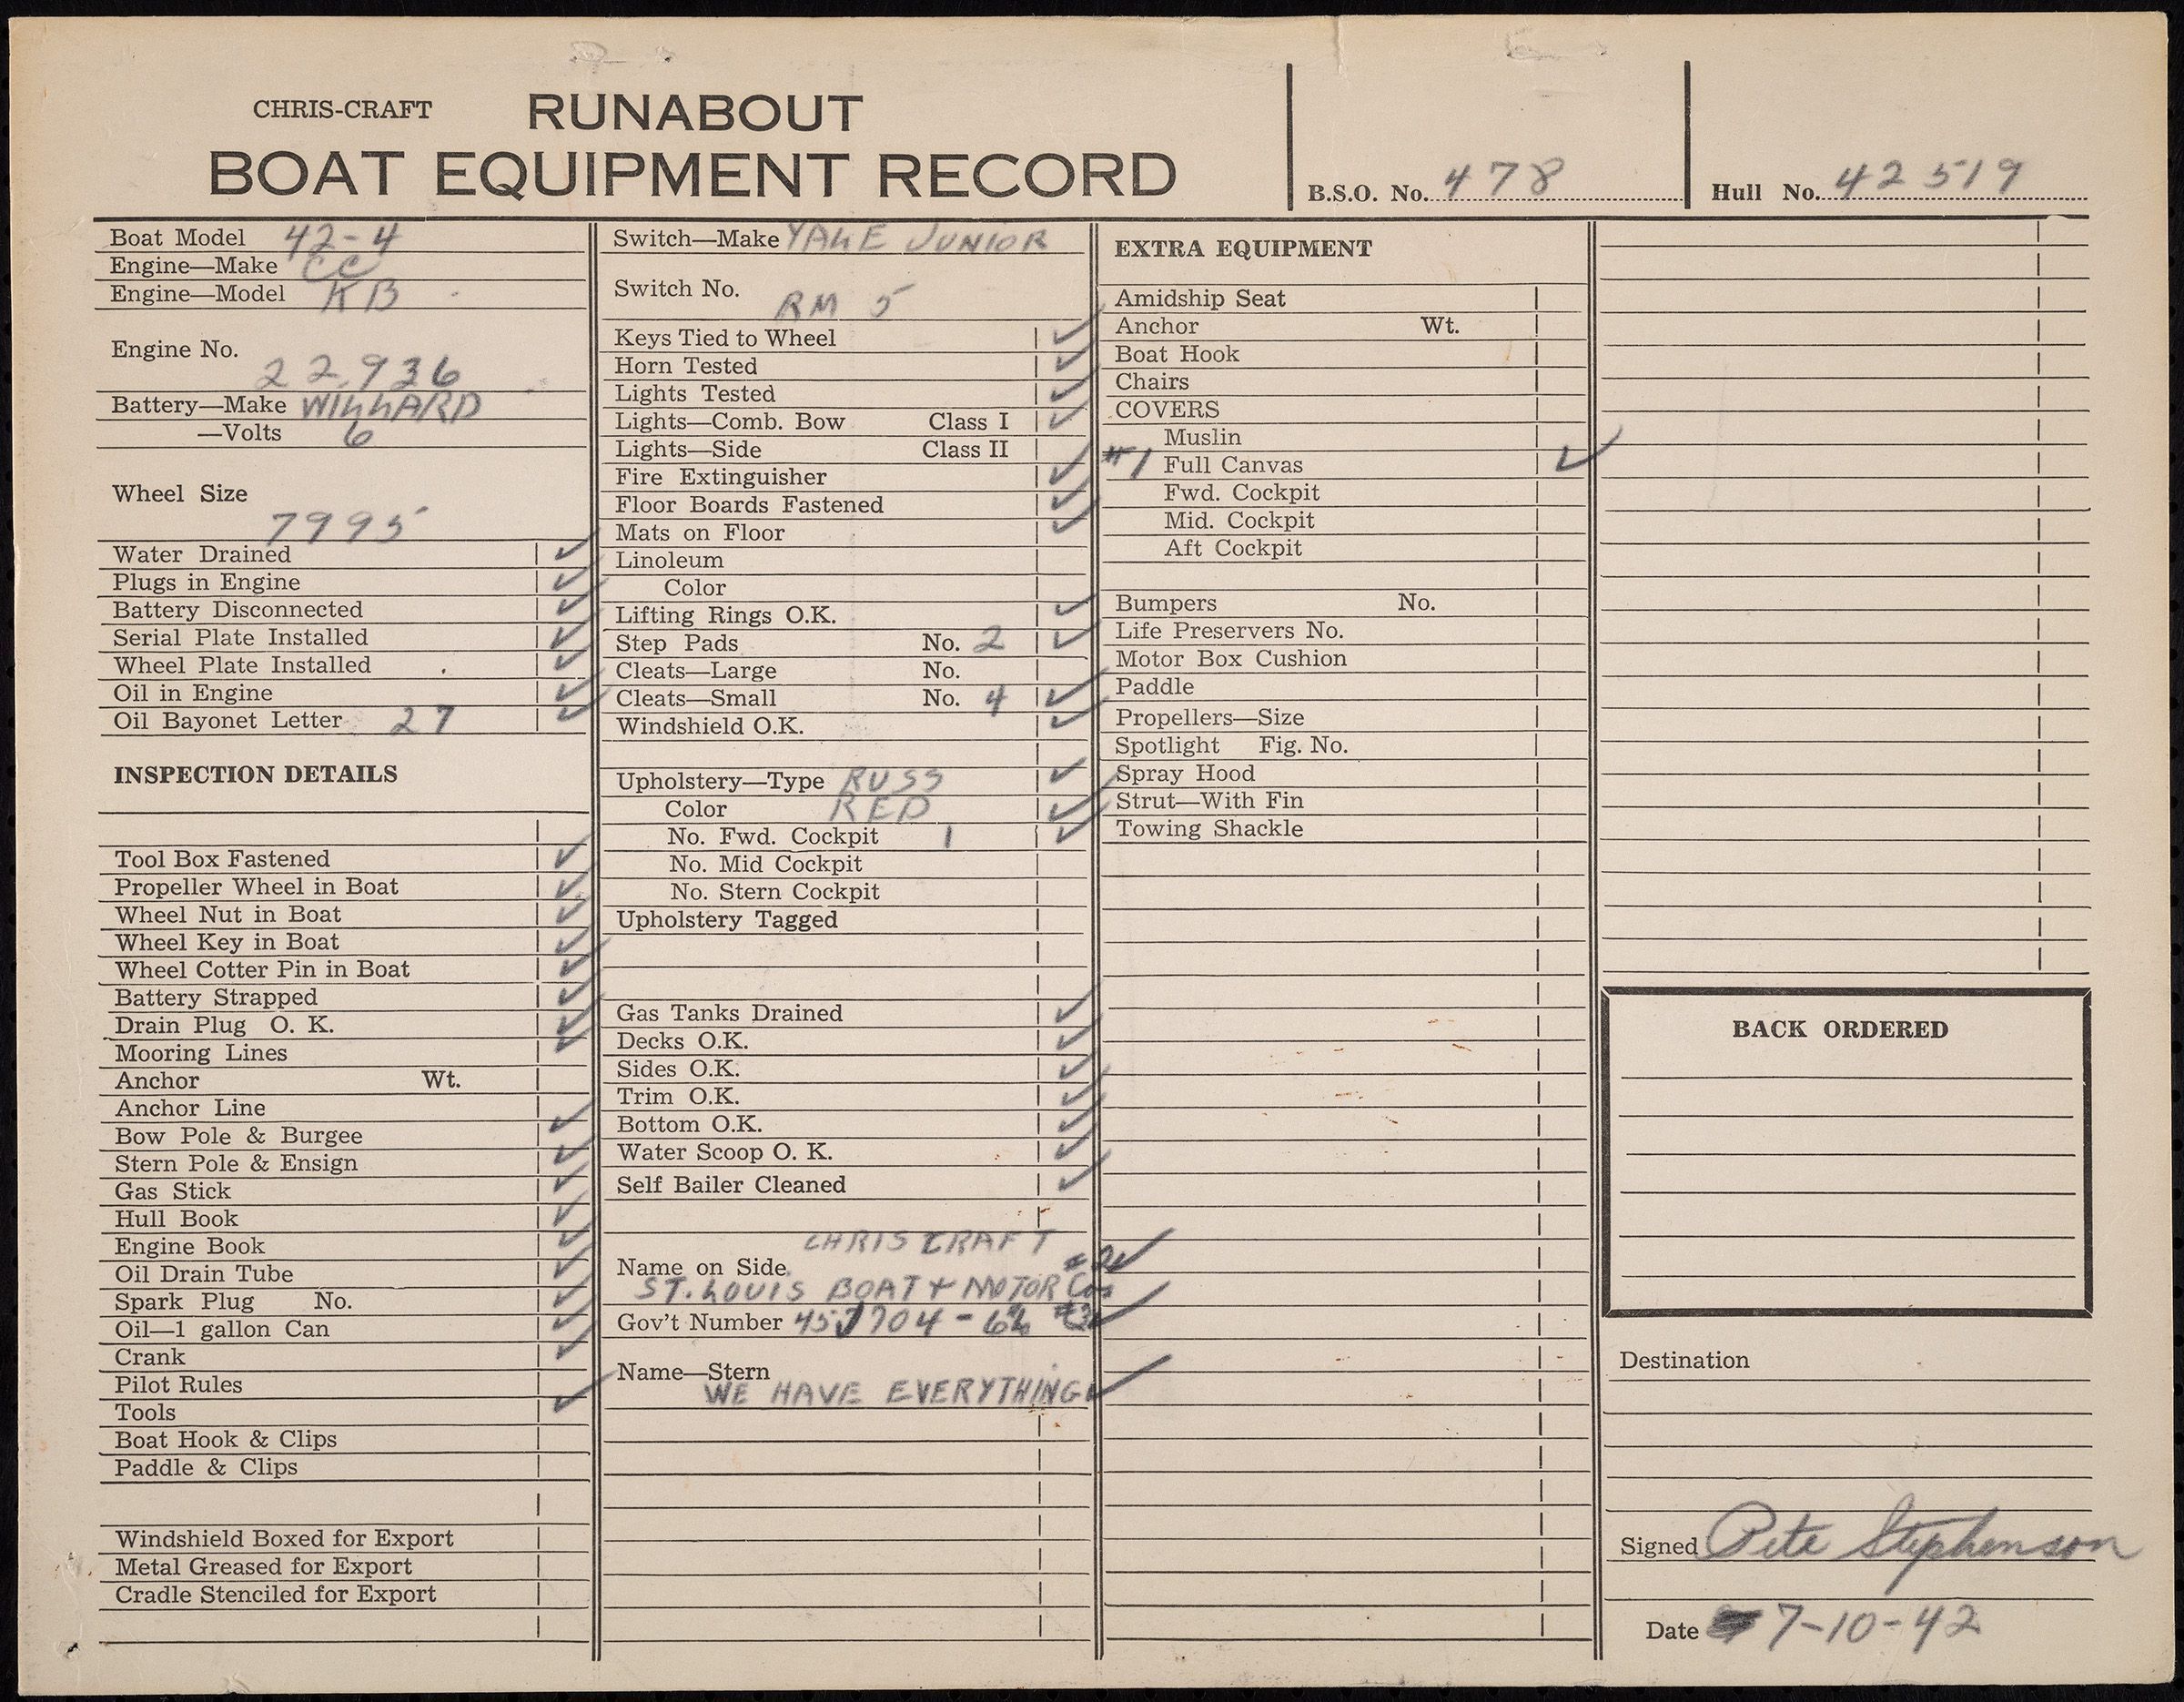 CHRIS-CRAFT RUNABOUT
BOAT EQUIPMENT RECORD
B.S.O. No. 478
Hull No. 42519
Boat Model 42-4
Engine—Make CC
Engine—Model KB
Engine No.
22936
Battery—Make WILLARD
—Volts 6
Wheel Size
7995
Water Drained ✓
Plugs in Engine ✓
Battery Disconnected ✓
Serial Plate Installed ✓
Wheel Plate Installed ✓
Oil in Engine ✓
Oil Bayonet Letter 27 ✓
INSPECTION DETAILS
Tool Box Fastened ✓
Propeller Wheel in Boat ✓
Wheel Nut in Boat ✓
Wheel Key in Boat ✓
Wheel Cotter Pin in Boat ✓
Battery Strapped ✓
Drain Plug O. K. ✓
Mooring Lines ✓
Anchor Wt.
Anchor Line
Bow Pole & Burgee ✓
Stern Pole & Ensign ✓
Gas Stick ✓
Hull Book ✓
Engine Book ✓
Oil Drain Tube ✓
Spark Plug No. ✓
Oil—1 gallon Can ✓
Crank ✓
Pilot Rules
Tools ✓
Boat Hook & Clips
Paddle & Clips
Windshield Boxed for Export
Metal Greased for Export
Cradle Stenciled for Export
Switch—Make YALE JUNIOR
Switch No.
RM 5
Keys Tied to Wheel ✓
Horn Tested ✓
Lights Tested ✓
Lights—Comb. Bow Class I ✓
Lights—Side Class II
Fire Extinguisher ✓
Floor Boards Fastened ✓
Mats on Floor ✓
Linoleum
Color
Lifting Rings O.K. ✓
Step Pads No. 2 ✓
Cleats—Large No.
Cleats—Small No. 4 ✓
Windshield O.K. ✓
Upholstery—Type RUSS ✓
Color RED ✓
No. Fwd. Cockpit 1 ✓
No. Mid Cockpit
No. Stern Cockpit
Upholstery Tagged
Gas Tanks Drained ✓
Decks O.K. ✓
Sides O.K. ✓
Trim O.K. ✓
Bottom O.K. ✓
Water Scoop O. K. ✓
Self Bailer Cleaned ✓
CHRIS CRAFT
Name on Side #2 ✓
ST. LOUIS BOAT & MOTOR Co
Gov't Number ✓
Name—Stern
WE HAVE EVERYTHING ✓
EXTRA EQUIPMENT
Amidship Seat
Anchor Wt.
Boat Hook
Chairs
COVERS
Muslin
#1 Full Canvas ✓
Fwd. Cockpit
Mid. Cockpit
Aft Cockpit
Bumpers No.
Life Preservers No.
Motor Box Cushion
Paddle
Propellers—Size
Spotlight Fig. No.
Spray Hood
Strut—With Fin
Towing Shackle
BACK ORDERED
Destination
Signed Pete Stephenson
Date 7-10-42